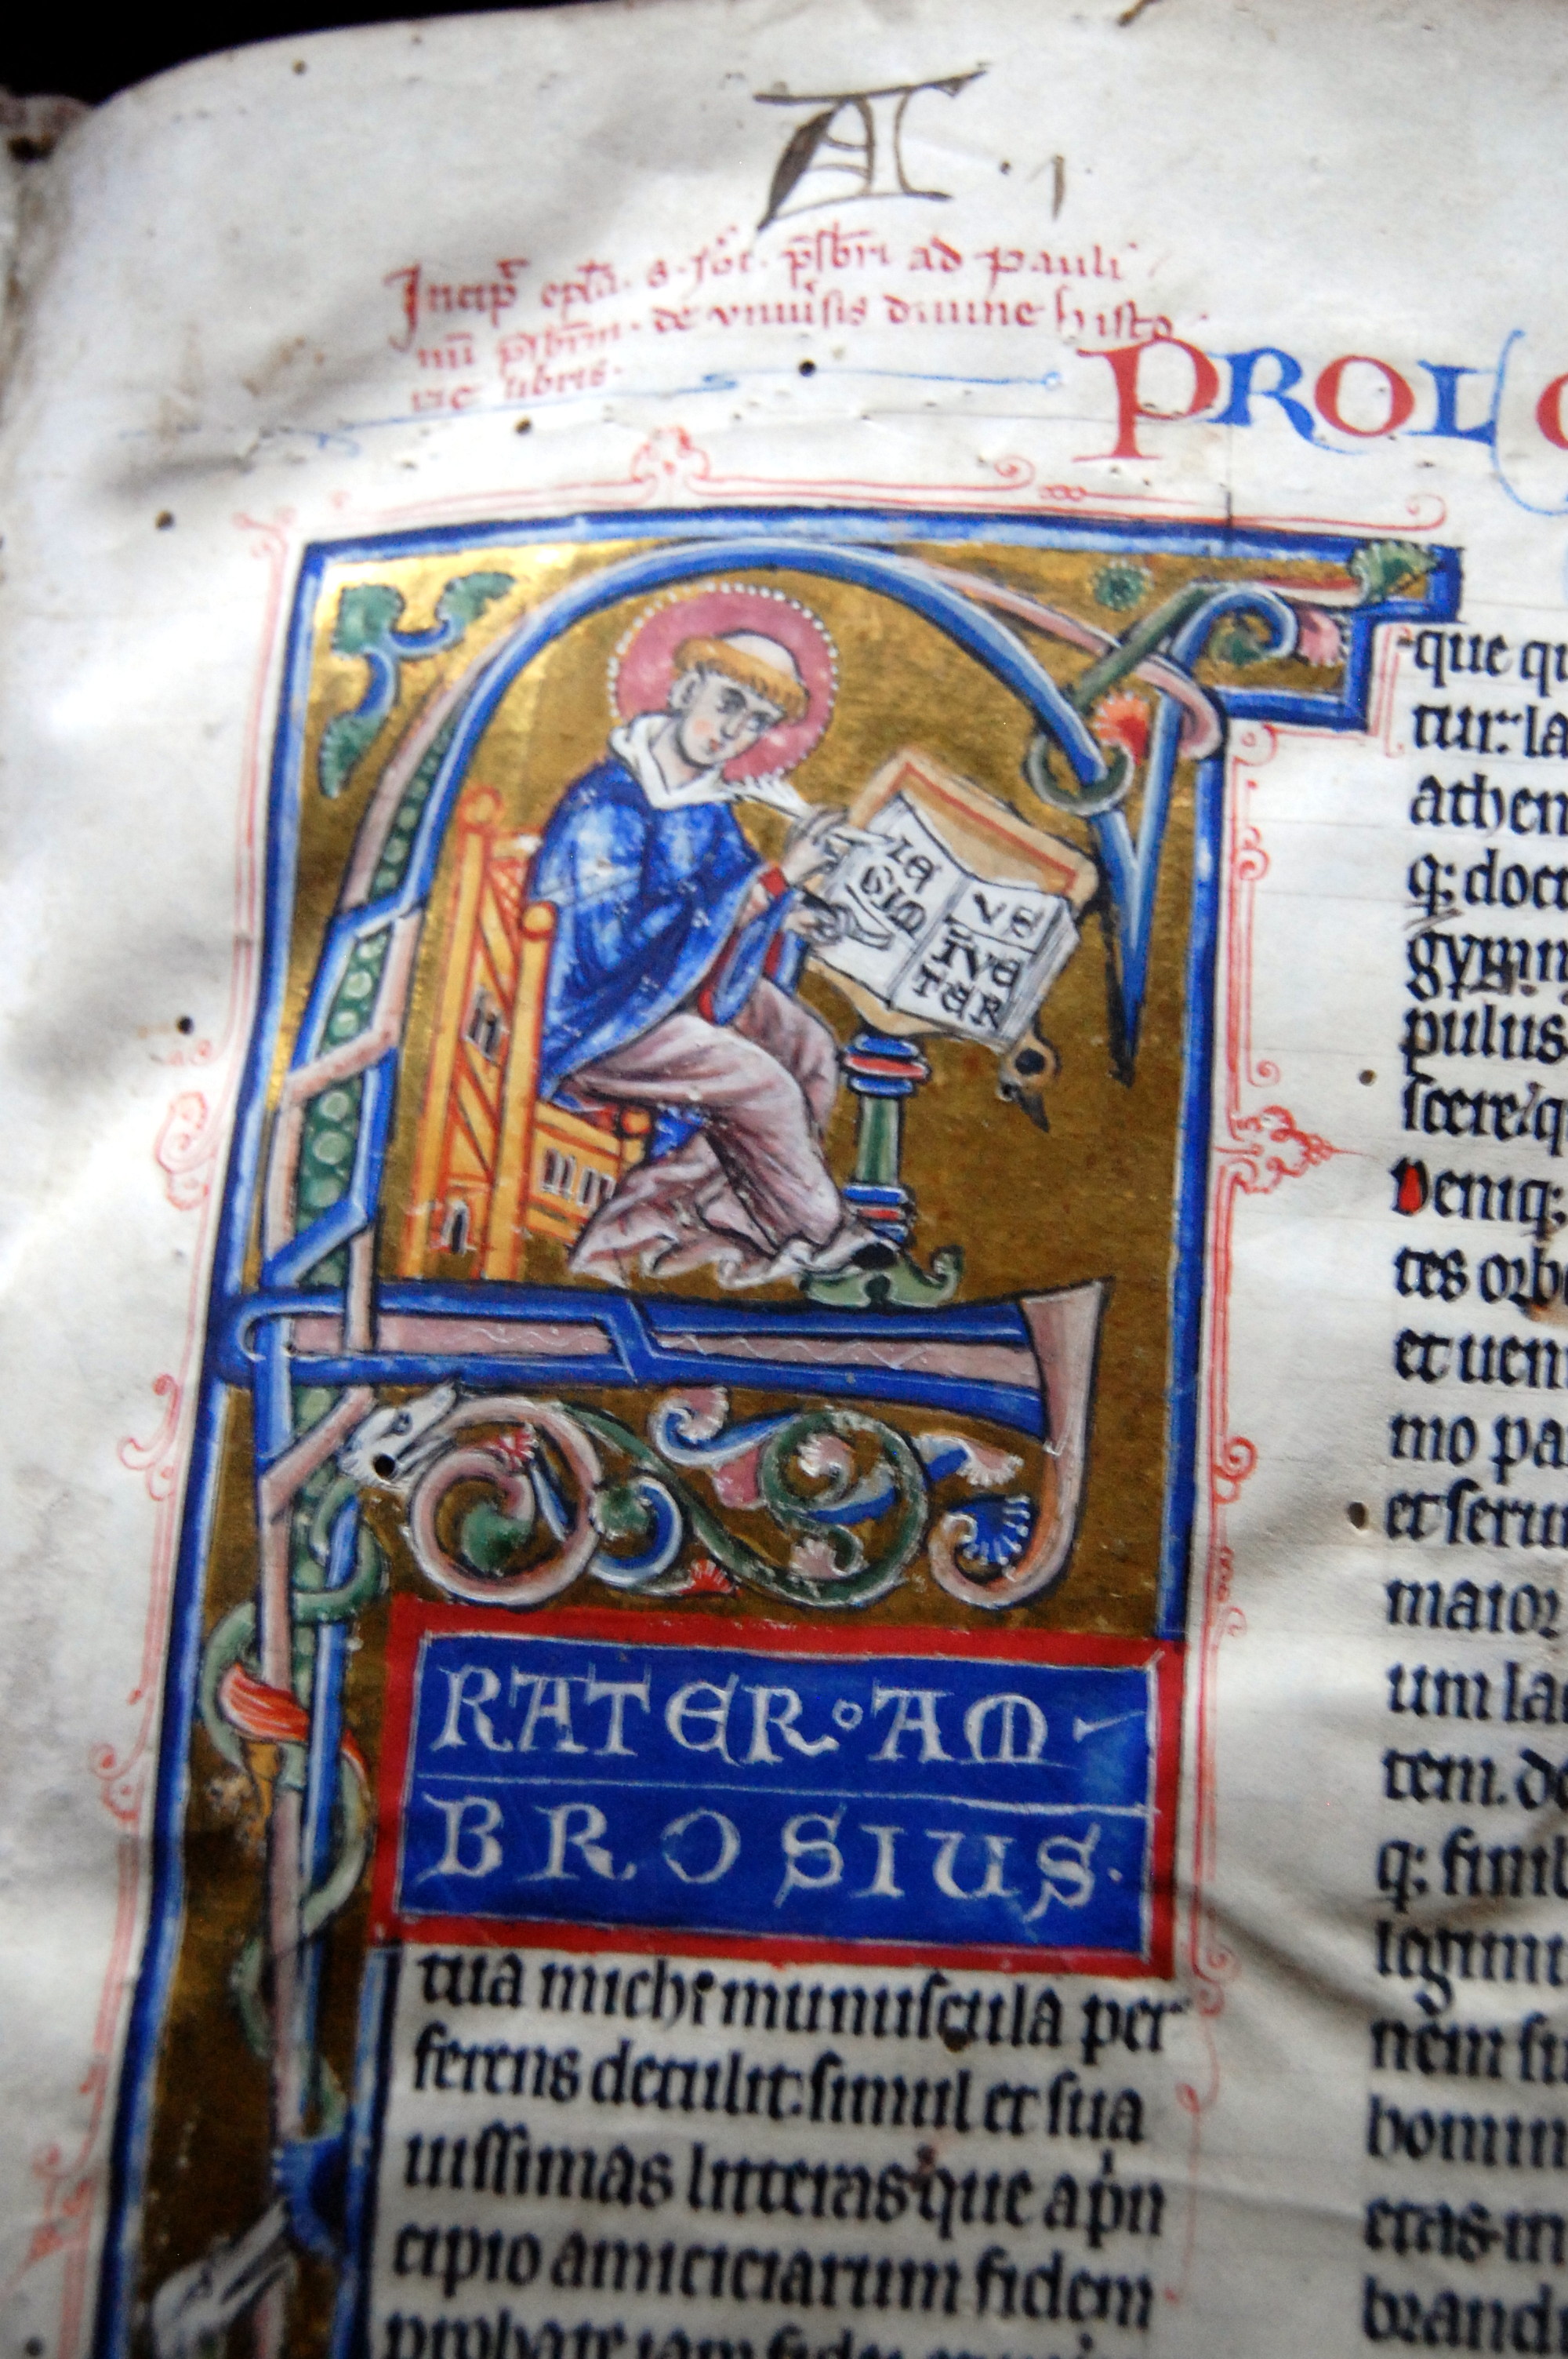 A · 1
Incip̄ ep̄la · s · Jer̄o · p̄sb̄ri ad Pauli
nū p̄sb̄rm · de vniuˀsis diuine histo
rie libris ·
PROLO
LE
GIM
VS
IN VE
TER
RATER · AM
BROSIUS ·
tua michi munuscula per
ferens detulit: simul et sua
uissimas litteras que a p̍n
cipio amiciciarum fidem
probate iam fidei
que qu
tur: la
athen
q; doct
gymn
pulus
scere/ q
Deniq;
tes orb
et uen
mo pa
et feru
maior
um la
tem. de
q; finib
legimu
nem su
homin
etas in
brand